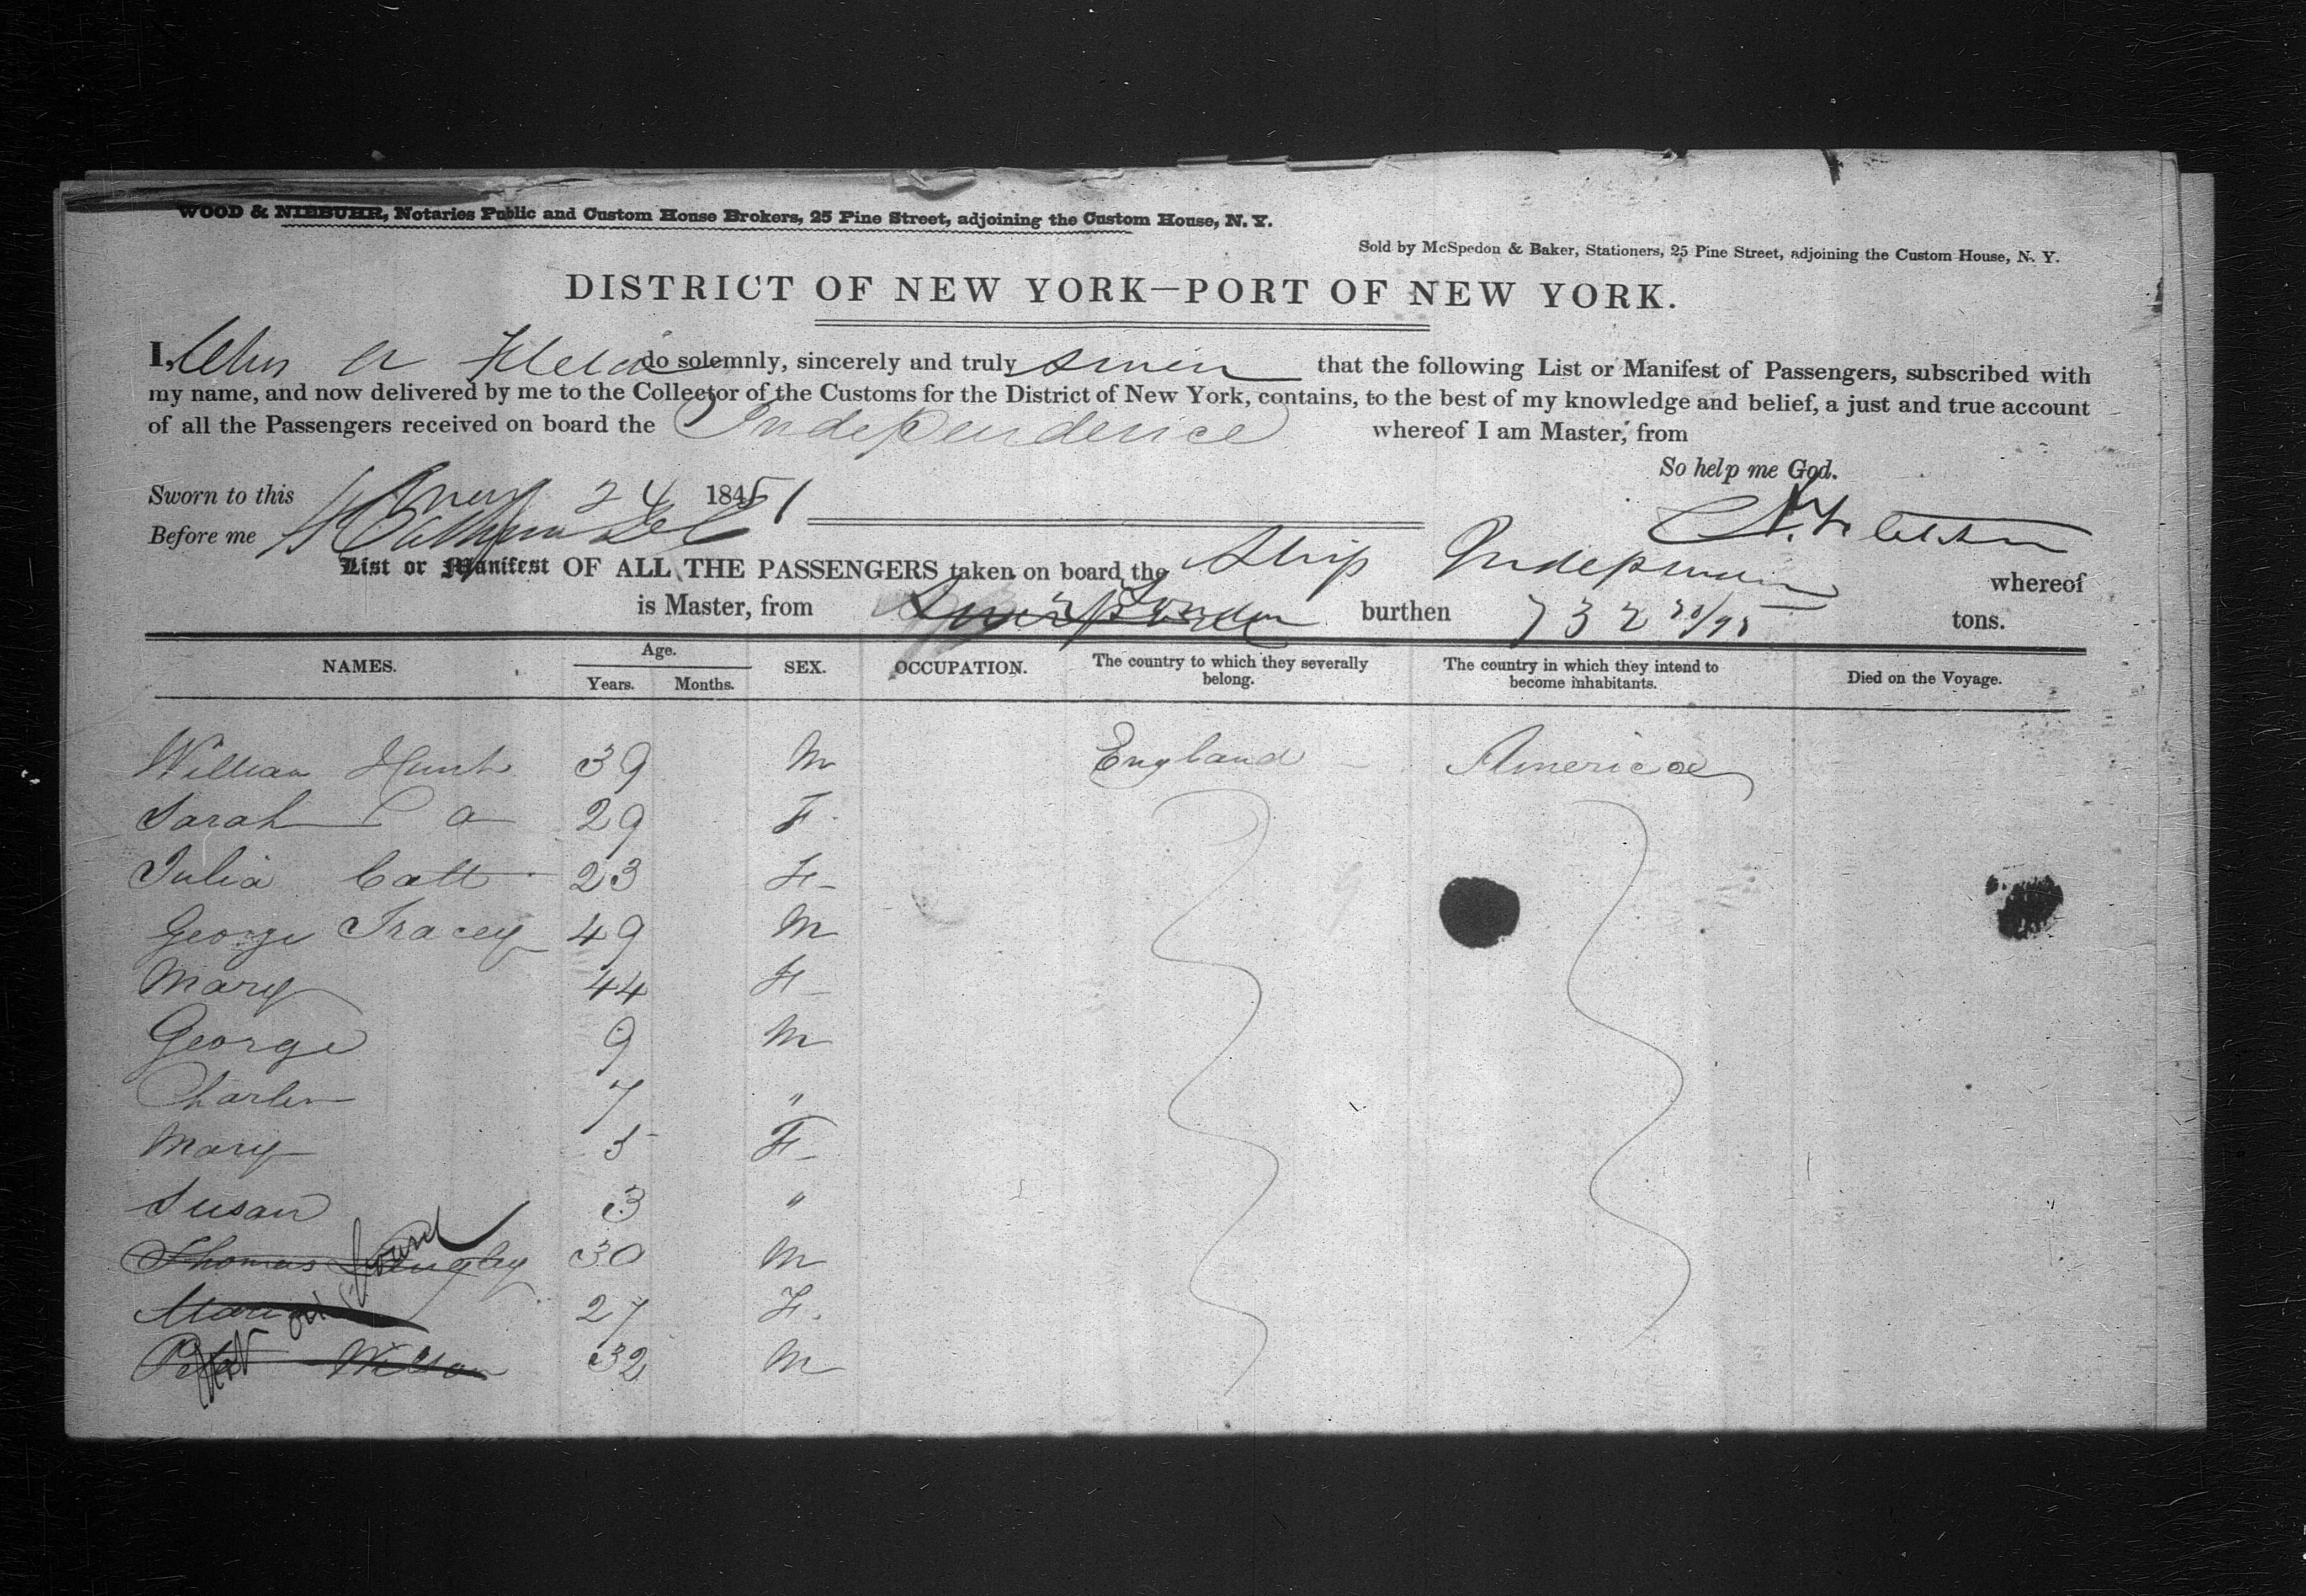 WOOD & NIEBUHR, Notaries Public and Custom House Brokers, 25 Pine Street, adjoining the Custom House, N. Y.
Sold by McSpedon & Baker, Stationers, 25 Pine Street, adjoining the Custom House, N. Y.
DISTRICT OF NEW YORK—PORT OF NEW YORK.
I, do solemnly, sincerely and truly that the following List or Manifest of Passengers, subscribed with
my name, and now delivered by me to the Collector of the Customs for the District of New York, contains, to the best of my knowledge and belief, a just and true account
of all the Passengers received on board the Independence whereof I am Master, from
So help me God.
Sworn to this 24 1851
Before me
List or Manifest OF ALL THE PASSENGERS taken on board the Ship whereof
is Master, from burthen 732 tons.
NAMES. Age. Years. Months. SEX. OCCUPATION. The country to which they severally belong. The country in which they intend to become inhabitants. Died on the Voyage.
William 39 M England America
Sarah 29 F
Julia Catt 23 F
George Tracey 49 M
Mary 44 F
George 9 M
Charles 7 "
Mary 5 F
Susan 3 "
Thomas 30 M
27 F.
Peter Wilson 32 M
Not on board